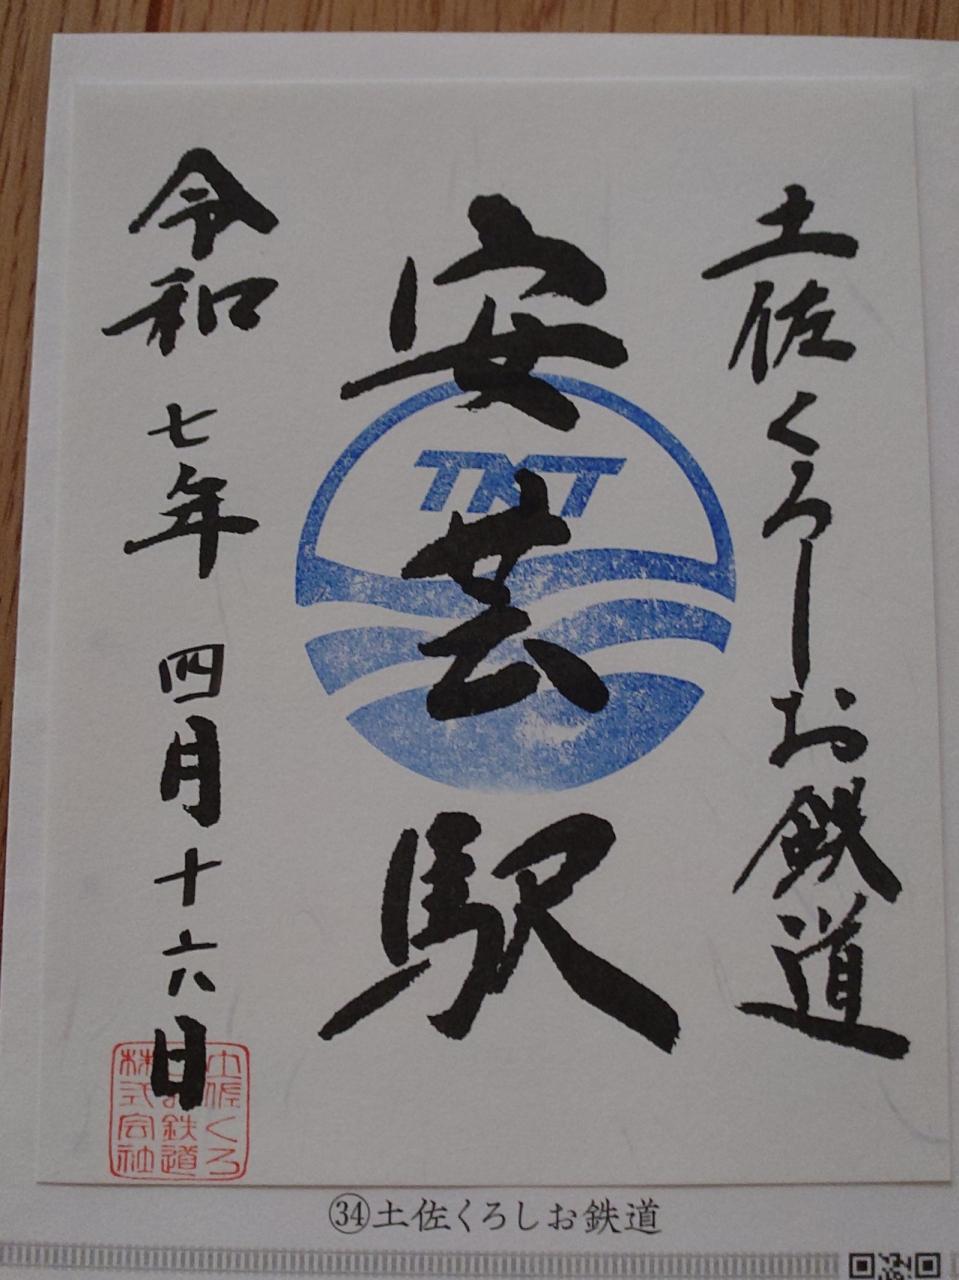 土佐くろしお鉄道
安芸駅
令和七年 四月十六日
TKT
土佐くろ
鉄道
株式会社
㉞土佐くろしお鉄道